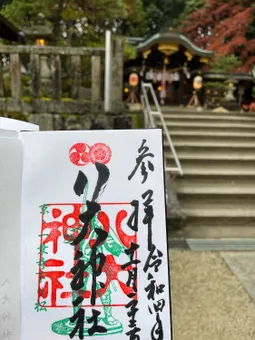 参拝
令和四年
十一月二十三日
八大神社
八大神社